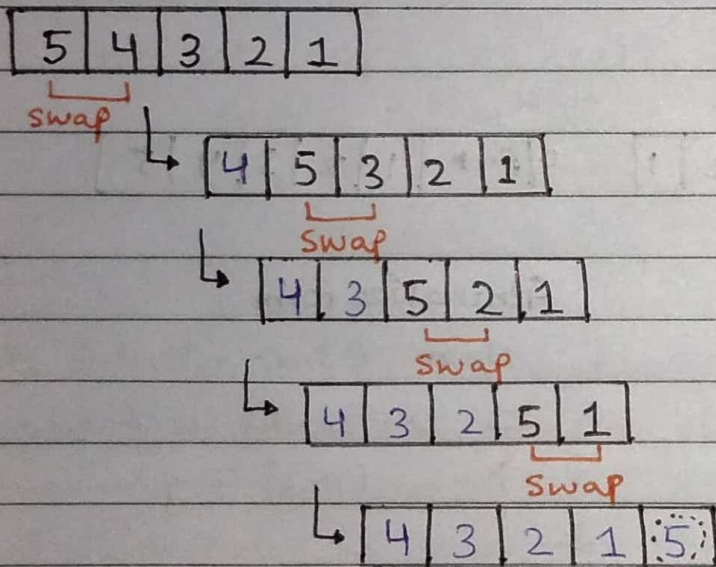 5 4 3 2 1
swap
4 5 3 2 1
swap
4 3 5 2 1
swap
4 3 2 5 1
swap
4 3 2 1 5